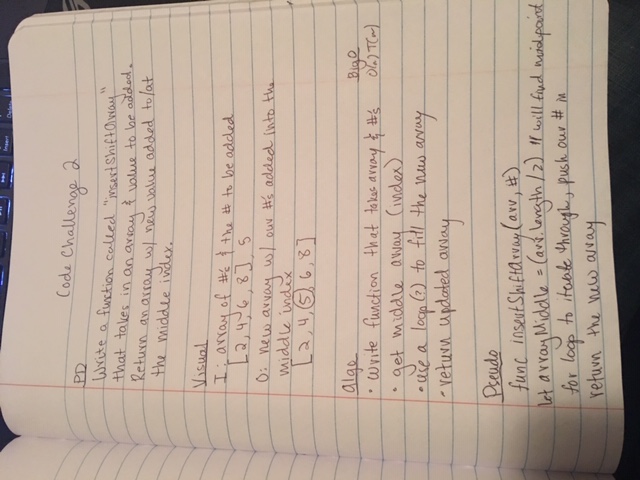 Insert
Delete
Code Challenge 2
PD
Write a function called "insertShiftArray"
that takes in an array & value to be added.
Return an array w/ new value added to/at
the middle index.
Visual
I: array of #'s & the # to be added
[2, 4, 6, 8], 5
O: new array w/ our #'s added into the
middle index
[2, 4, 5, 6, 8]
algo
• write function that takes array & #'s
• get middle away (index)
• use a loop (?) to fill the new array
• return updated array
Big O
O(n) T(n)
Pseudo
func insertShiftArray (arr, #)
let arrayMiddle = (arr.length / 2) // will find midpoint
for loop to iterate through, push our # in
return the new array